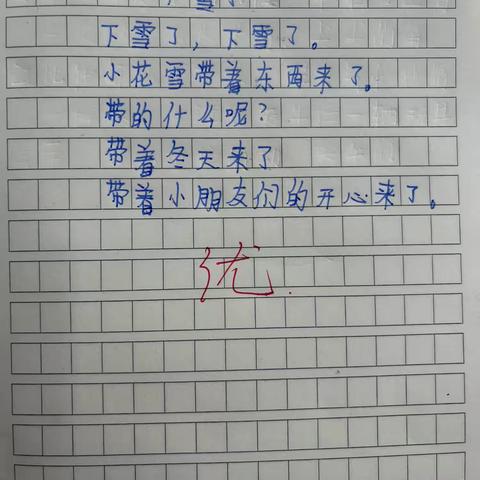 下雪了，下雪了。
小花雪带着东西来了。
带的什么呢？
带着冬天来了
带着小朋友们的开心来了。
优